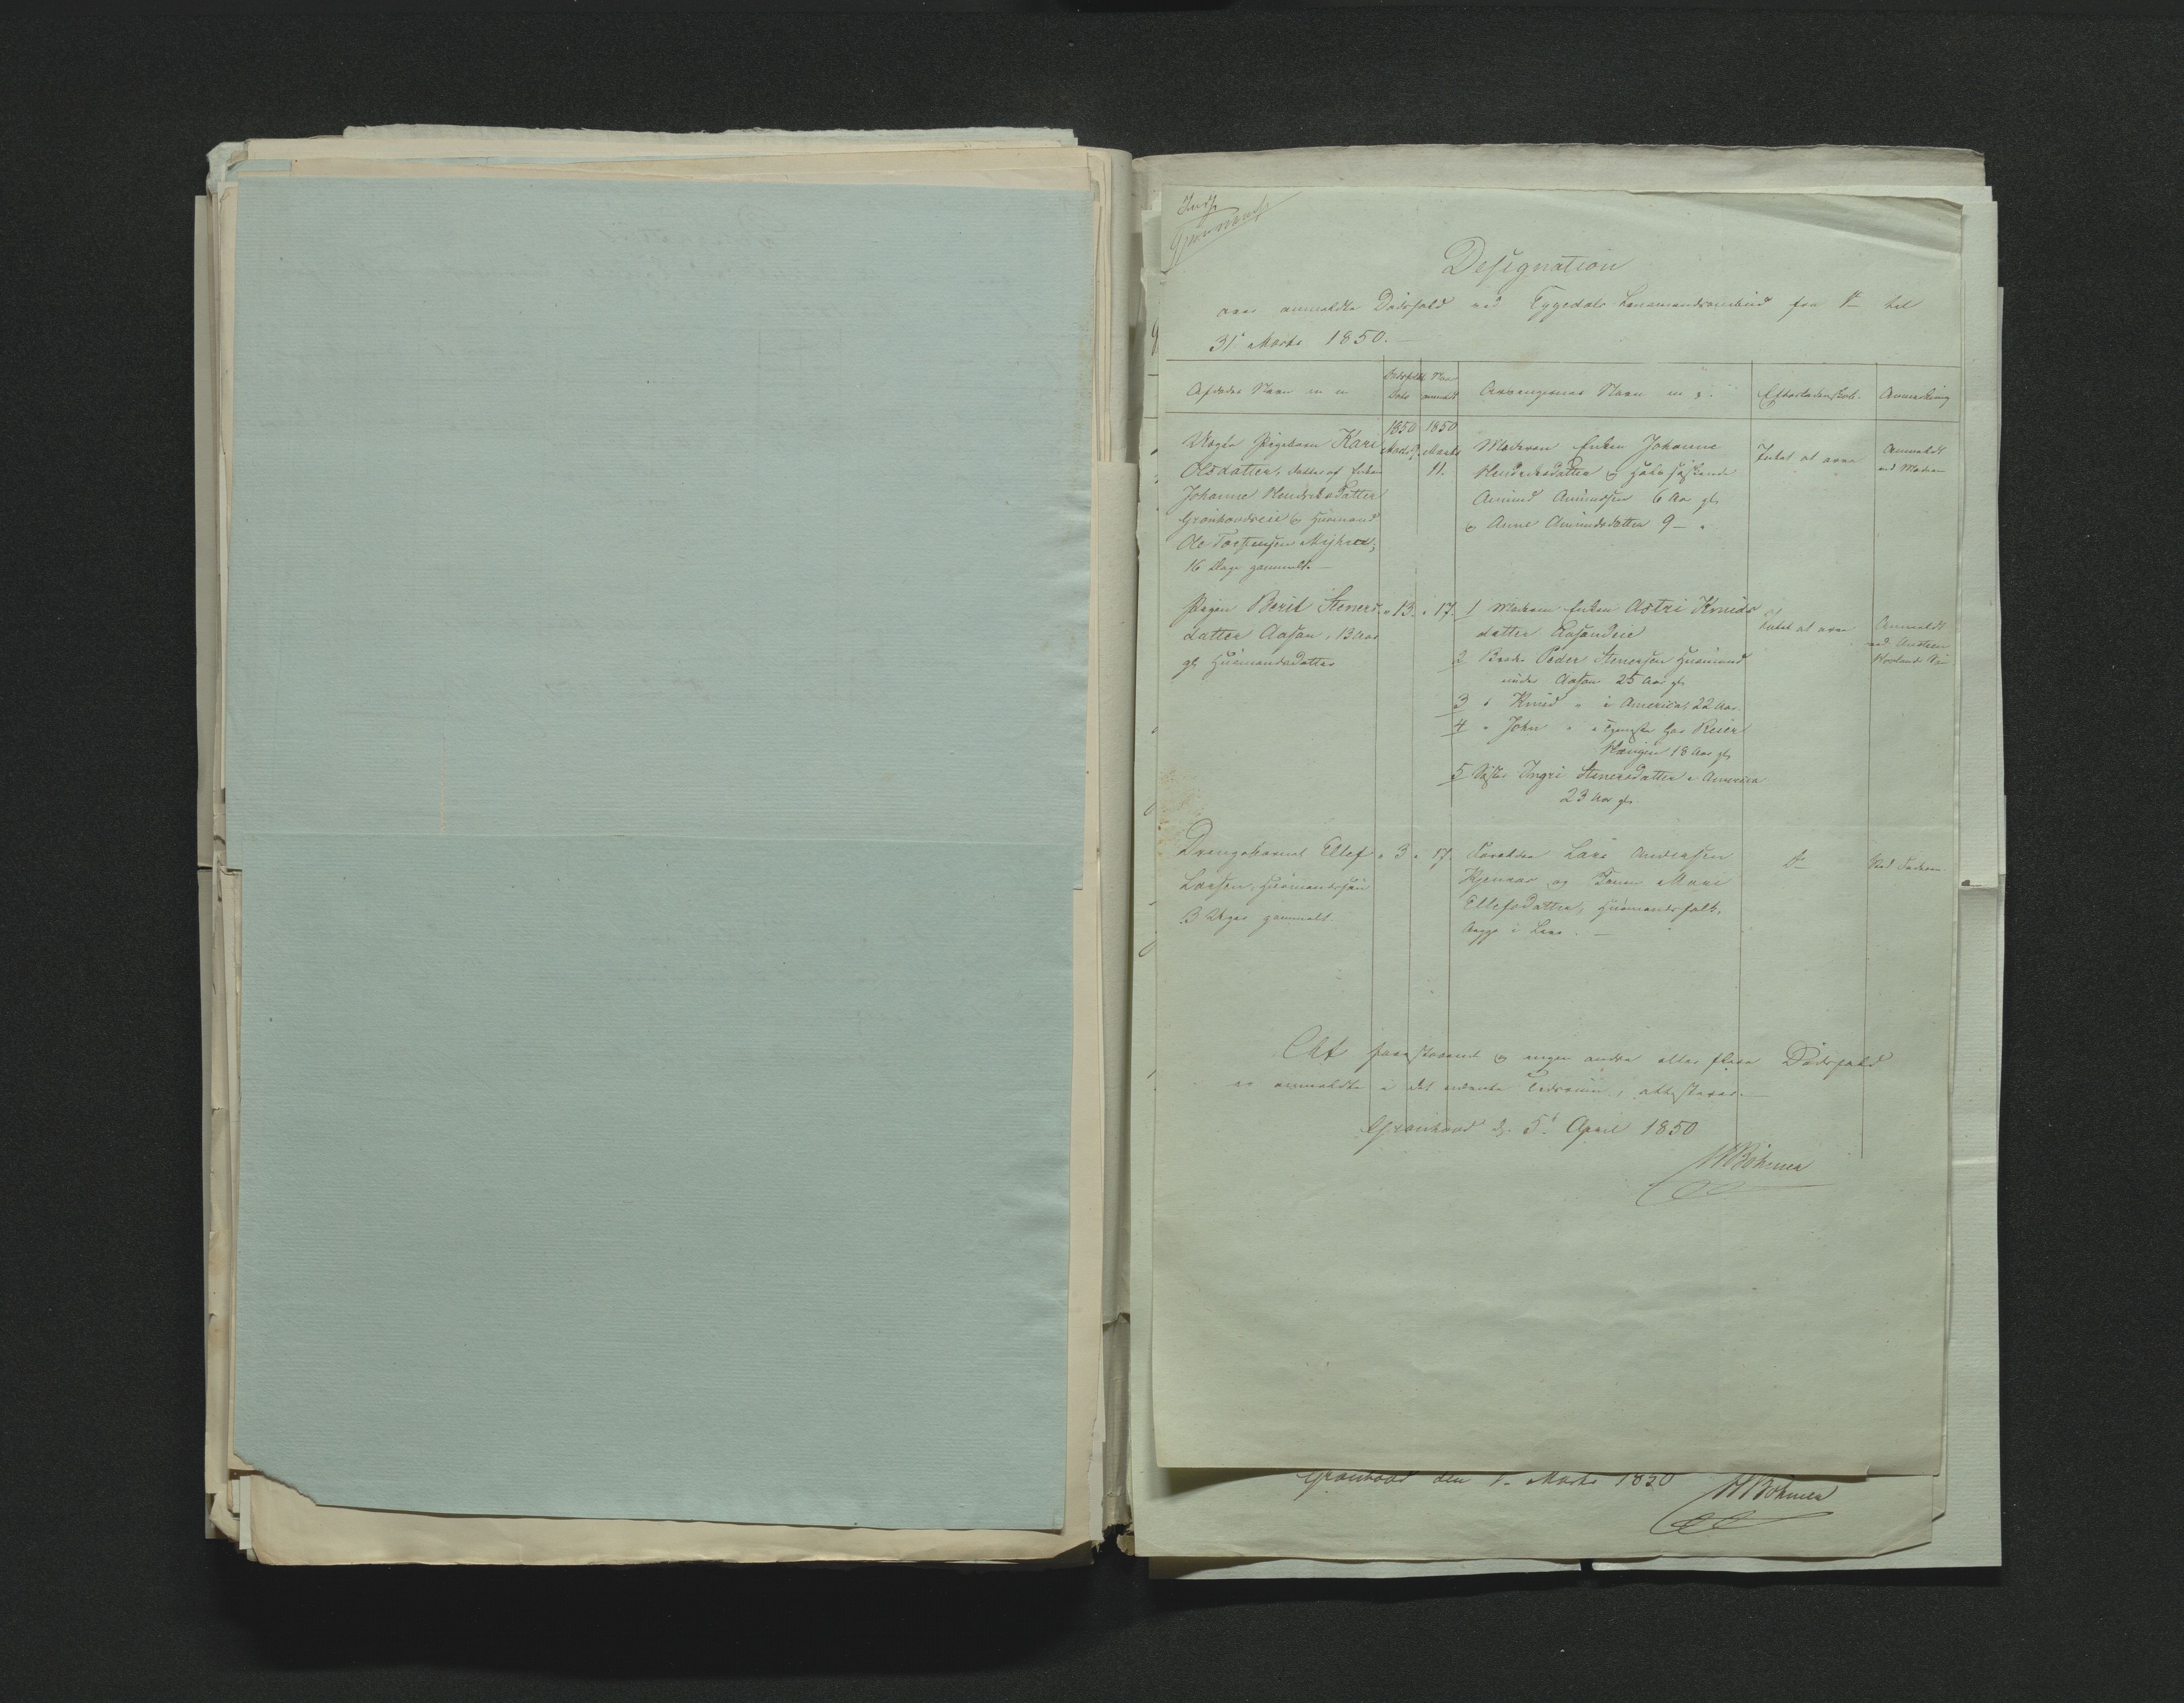 Designation
over anmeldte Dødsfald ved Eggedals Lensmandsombud fra 1ste til
31te Marts 1850. —
Afdødes Navn m m
Dødsfaldets Dato
Naar anmeldt
Arvingernes Navn m. v.
Efterladenskab.
Anmerkning
1850 1850
Uægte Pigebarn Kari
Olsdatter, datter af Enken
Johanne Hendriksdatter
Grønhovdseie og Huusmand
Ole Torstensen
16 Dage gammelt. —
Marts 9. Marts
11.
Moderen Enken Johanne
Hendriksdatter og halv Søskende
Amund Amundsen 6 Aar gl.
og Anne Amundsdatter 9 — "
Intet at arve
Anmeldt
ved Moderen
Pigen Berit Steners
datter Aasan, 13 Aar
gl. Huusmandsdatter
" 13. " 17.
1 Moderen Enken Astri Knuds
datter Aasandeie
2 Broder Peder Stenersen Huusmand
under Aasan 25 Aar gl.
3 " Knud " i America, 22 Aar
4 " John " i Tjeneste hos Reier
18 Aar gl.
5 Søster Ingri Stenersdatter i America
23 Aar gl.
Intet at arve
Anmeldt
ved
Drengebarnet Ellef
Larsen, Huusmandssøn
3 Uger gammelt.
" 3 " 17.
Forældre Lars Andersen
og Konen Mari
Ellefsdatter, Huusmandsfolk,
begge i Live. —
do
Ved Faderen
At foranstaaende og ingen andre eller flere Dødsfald
er anmeldte i det nævnte Tidsrum, attesteres. —
Grønhovd d. 5te April 1850
H Bøhmer
Grønhovd den 1. Marts 1850
H Bøhmer